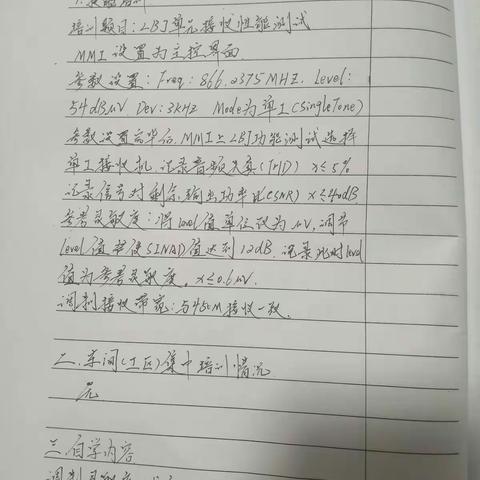 培训题目:LBJ单元接收性能测试
MMI设置为主控界面
参数设置:Freq:866.2375MHZ. Level:
54dBμV Dev:3KHZ Mode为单工(SingleTone)
参数设置完毕后,MMI上LBJ功能测试选择
单工接收机,记录音频失真(THD) x≤5%
记录信号对剩余输出功率比(SNR) x≤40dB
参考灵敏度:将level值单位改为μV,调节
level值并使SINAD值达到12dB.记录此时level
值为参考灵敏度,x≤0.6μV.
调制接收带宽:与450M接收一致.
二.车间(工区)集中培训情况
无
三.自学内容